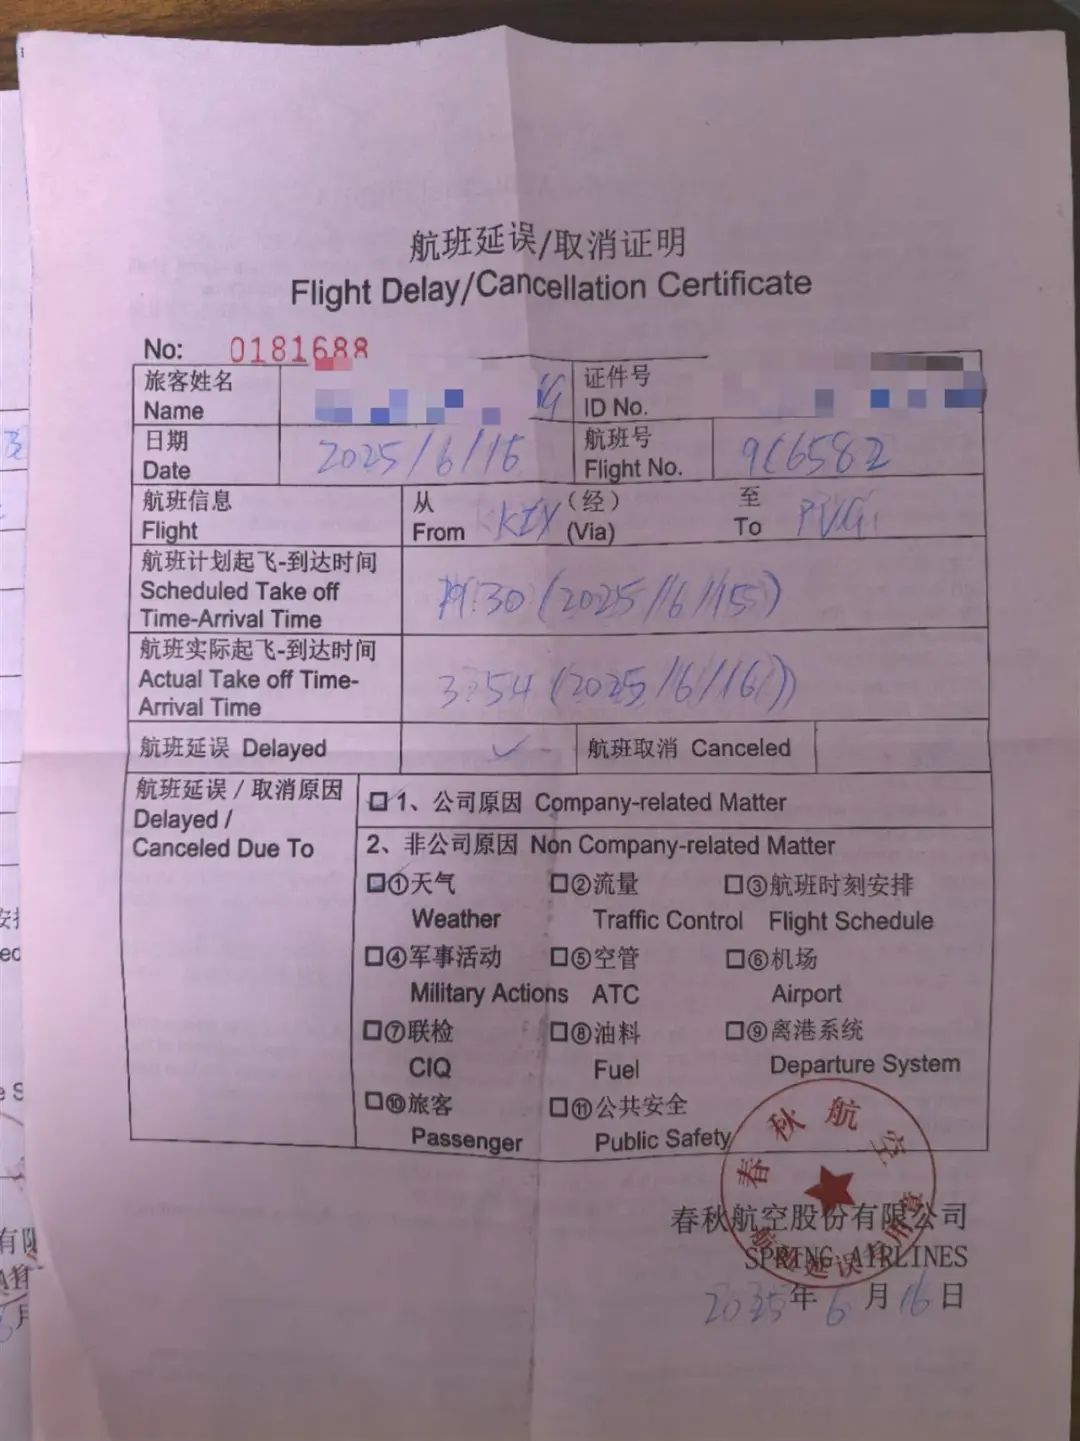 航班延误/取消证明
Flight Delay/Cancellation Certificate
No: 0181688
旅客姓名
Name
证件号
ID No.
日期
Date
2025/6/15
航班号
Flight No.
9C6582
航班信息
Flight
从 (经) 至
From KIX (Via) To PVG
航班计划起飞-到达时间
Scheduled Take off
Time-Arrival Time
19:30 (2025/6/15)
航班实际起飞-到达时间
Actual Take off Time-
Arrival Time
3:54 (2025/6/16)
航班延误 Delayed ✓ 航班取消 Canceled
航班延误/取消原因
Delayed /
Canceled Due To
□1、公司原因 Company-related Matter
2、非公司原因 Non Company-related Matter
☑①天气 □②流量 □③航班时刻安排
Weather Traffic Control Flight Schedule
□④军事活动 □⑤空管 □⑥机场
Military Actions ATC Airport
□⑦联检 □⑧油料 □⑨离港系统
CIQ Fuel Departure System
□⑩旅客 □⑪公共安全
Passenger Public Safety
春秋航空
春秋航空股份有限公司
SPRING AIRLINES
2025年6月16日